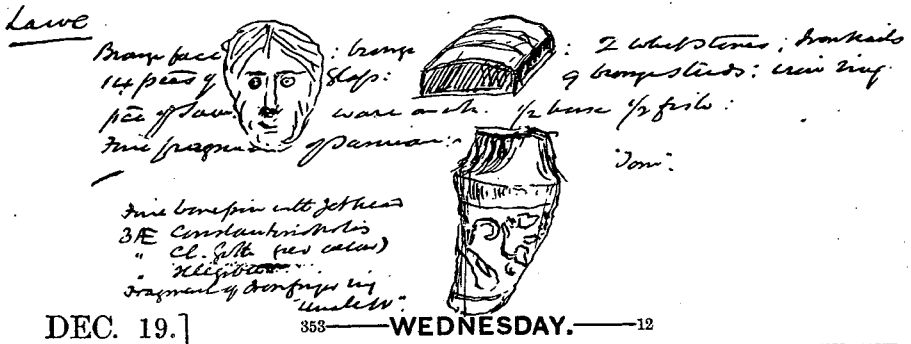 Lawe
Bronze face : bronze : 2 whetstones ; Iron Nails
14 pieces of Glass: 9 bronze studs : iron ring
pce of ware ½ horse ½ fish :
Fine fragment of Samian :
"Tom".
Fine bone pin with Jet head
3Æ Constantinopolis
" Cl. Goth
" Illegible
Fragment of Iron finger ring
DEC. 19.] 353 WEDNESDAY. 12